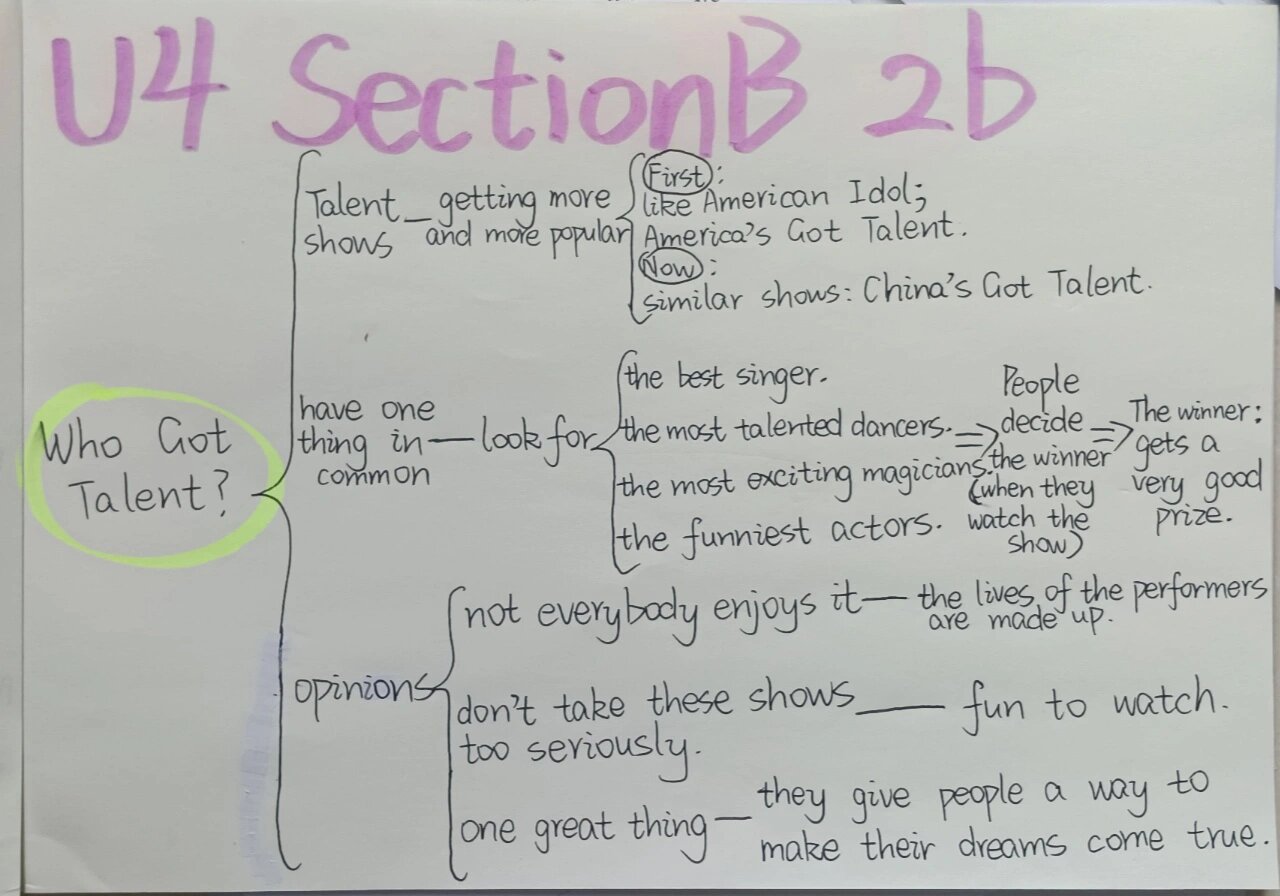 U4 SectionB 2b
Who Got
Talent?
Talent
shows
getting more
and more popular
First:
like American Idol;
America's Got Talent.
Now:
similar shows: China's Got Talent.
have one
thing in
common
look for
the best singer.
the most talented dancers.
the most exciting magicians.
the funniest actors.
People
decide
the winner
(when they
watch the
show)
The winner:
gets a
very good
prize.
opinions
not everybody enjoys it
the lives of the performers
are made up.
don't take these shows
too seriously.
fun to watch.
one great thing
they give people a way to
make their dreams come true.